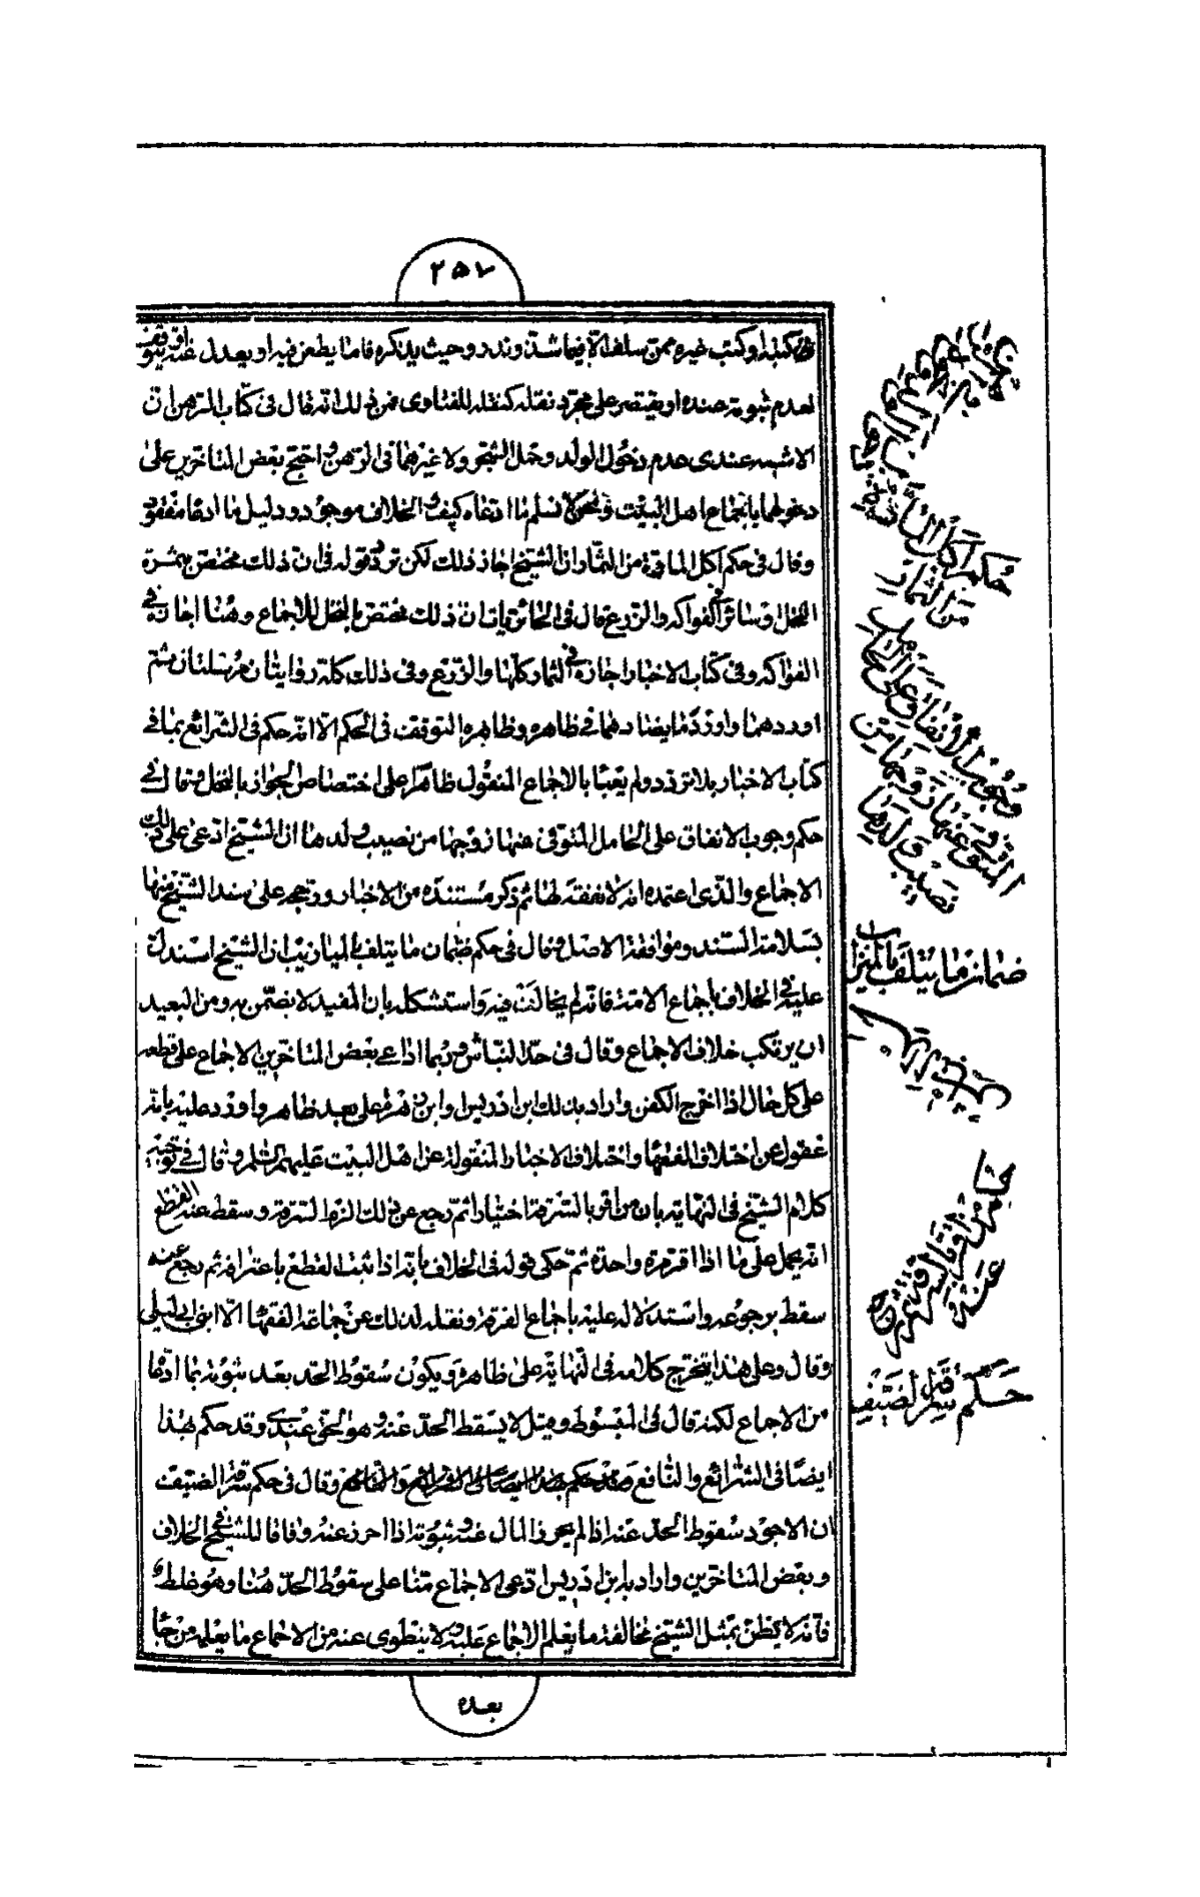 ٢٥٧
كتبه او كتب غيره ممن سلف الا فيما شذ وندر وحيث يذكره فاما يطعن فيه او يعدل عنه
لعدم ثبوته عنده او يقتصر على مجرد نقله كنقله للفتاوى فمن ذلك انه قال فى كتاب الرهن ان
الاشبه عندى عدم دخول الولد وحمل الشجر ولا غيرهما فى الرهن واحتج بعض المتاخرين على
دخولهما باجماع اهل البيت ونحن لا نسلم ما ادعاه كيف والخلاف موجود ودليل ما ادعاه مفقود
وقال فى حكم اكل المارة من الثمار ان الشيخ اجاز ذلك لكن تردد قوله فى ان ذلك مختص بثمرة
النخل او سائر الفواكه والزرع قال فى الحائريات ان ذلك مختص بالنخل للاجماع وهنا اجازه فى
الفواكه وفى كتاب الاخبار اجازه فى الثمار كلها والزرع وفى ذلك كله روايتان مرسلتان ثم
اوردهما واورد ما يضادهما فى ظاهره وظاهره التوقف فى الحكم الا انه حكم فى الشرائع بما فى
كتاب الاخبار بلا تردد ولم يعبا بالاجماع المنقول ظاهرا على اختصاص الجواز بالنخل وقال فى
حكم وجوب الانفاق على الحامل المتوفى عنها زوجها من نصيب ولدها ان الشيخ ادعى على ذلك
الاجماع والذى اعتمده انه لا نفقة لها ثم ذكر مستنده من الاخبار ورجحه على سند الشيخ منها
بسلامة السند وموافقة الاصل وقال فى حكم ضمان ما يتلف بالميازيب ان الشيخ استدل
عليه فى الخلاف باجماع الامة فانه لم يخالف فيه واستشكله بان المفيد لا يضمن به ومن البعيد
ان يرتكب خلاف الاجماع وقال فى حد النباش وربما ادعى بعض المتاخرين الاجماع على قطعه
على كل حال اذا اخرج الكفن واراد بذلك ابن ادريس او ابن زهرة على بعد ظاهر واورد عليه بانه
غفول عن اختلاف الفقهاء واختلاف الاخبار المنقولة عن اهل البيت عليهم السلم وقال فى توجيه
كلام الشيخ فى النهاية بان من اقر بالسرقة اختيارا ثم رجع عن ذلك الزم السرقة وسقط عنه القطع
انه يحمل على ما اذا اقر مرة واحدة ثم حكى قوله فى الخلاف بانه اذا ثبت القطع باعترافه ثم رجع عنه
سقط برجوعه واستدلاله عليه باجماع الفرقة ونقله لذلك عن جماعة الفقهاء الا ابن ابى ليلى
وقال وعلى هذا يتخرج كلامه فى النهاية على ظاهره ويكون سقوط الحد بعد ثبوته بما ادعاه
من الاجماع لكنه قال فى المبسوط وقيل لا يسقط الحد عنه وهو الحق عندى وقد حكم بهذا
ايضا فى الشرائع والنافع وقال فى حكم سرقة الضيف
ان الاجود سقوط الحد عنه اذا لم يحرز المال عنه وثبوته اذا احرز عنه وفاقا للشيخ فى الخلاف
وبعض المتاخرين واراد به ابن ادريس ادعى الاجماع منا على سقوط الحد هنا وهو غلط
فانه لا يظن بمثل الشيخ مخالفة ما يعلم الاجماع عليه ولا ينطوى عنه من الاجماع ما يعلمه من جاء
بعده
حكم اكل المارة
من الثمار
وجوب الانفاق على الحامل
المتوفى عنها زوجها من
نصيب ولدها
ضمان ما يتلف بالميزاب
حكم من اقر بالسرقة
حكم سرقة الضيف